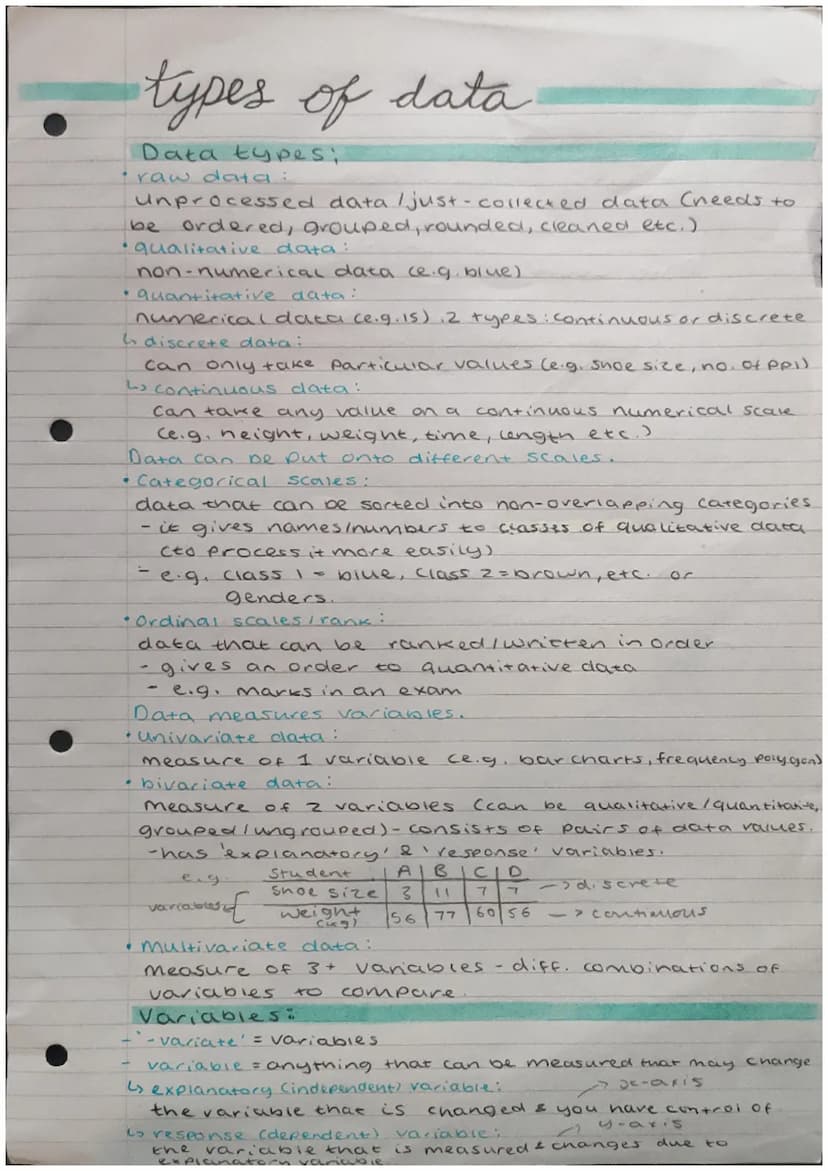 types of data
Data types:
• raw data:
unprocessed data / just-collected data (needs to
be ordered, grouped, rounded, cleaned etc.)
• qualitative data:
non-numerical data (e.g. blue)
• quantitative data:
numerical data (e.g. 15). 2 types: continuous or discrete
↳ discrete data:
can only take particular values (e.g. shoe size, no. of ppl)
↳ continuous data:
can take any value on a continuous numerical scale
(e.g. height, weight, time, length etc.)
Data can be put onto different scales.
• Categorical scales:
data that can be sorted into non-overlapping categories
- it gives names/numbers to classes of qualitative data
(to process it more easily)
- e.g. class 1 = blue, class 2 = brown, etc. or
genders.
• ordinal scales/rank:
data that can be ranked/written in order
- gives an order to quantitative data
- e.g. marks in an exam
Data measures variables.
• univariate data:
measure of 1 variable (e.g. bar charts, frequency polygon)
• bivariate data:
measure of 2 variables (can be qualitative/quantitative,
grouped/ungrouped) - consists of pairs of data values.
- has 'explanatory' & 'response' variables.
e.g. Student A B C D
variables shoe size 3 11 7 7 → discrete
weight (kg) 56 77 60 56 → continuous
• multivariate data:
measure of 3+ variables - diff. combinations of
variables to compare.
Variables:
- '-variate' = variables
- variable = anything that can be measured that may change
↳ explanatory (independent) variable: → x-axis
the variable that is changed & you have control of
↳ response (dependent) variable: → y-axis
the variable that is measured & changes due to
explanatory variable